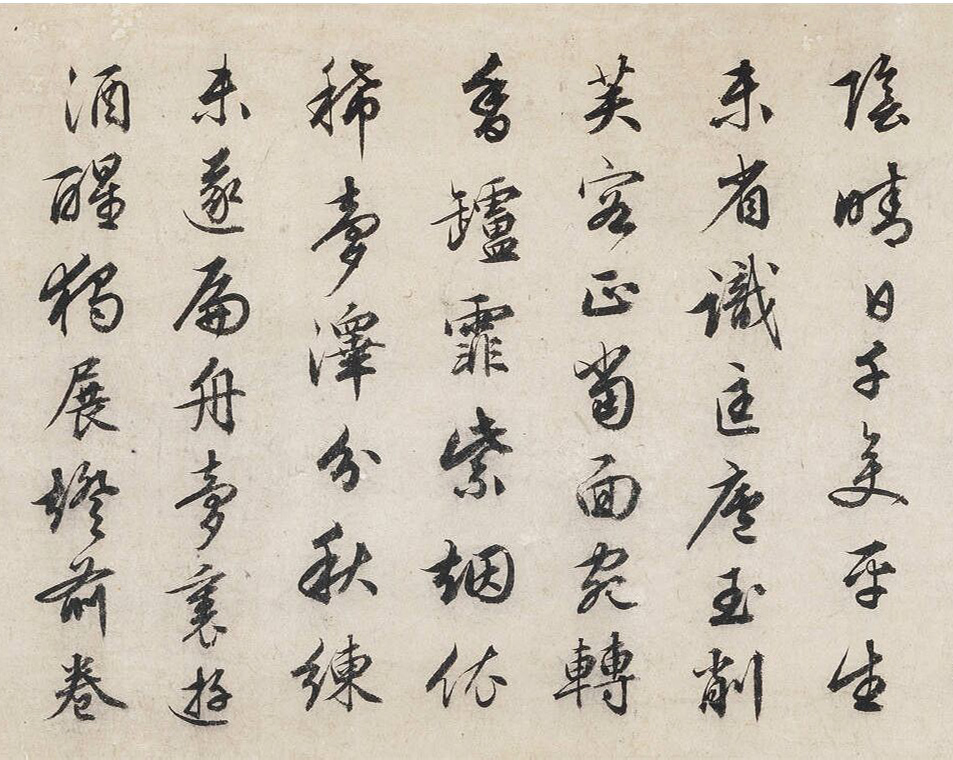 陰晴日千變平生
未省識匡廬玉削
芙容正當面宛轉
香罏霏紫烟依
稀夢澤分秋練
未遂扁舟夢裏游
酒醒獨展燈前卷